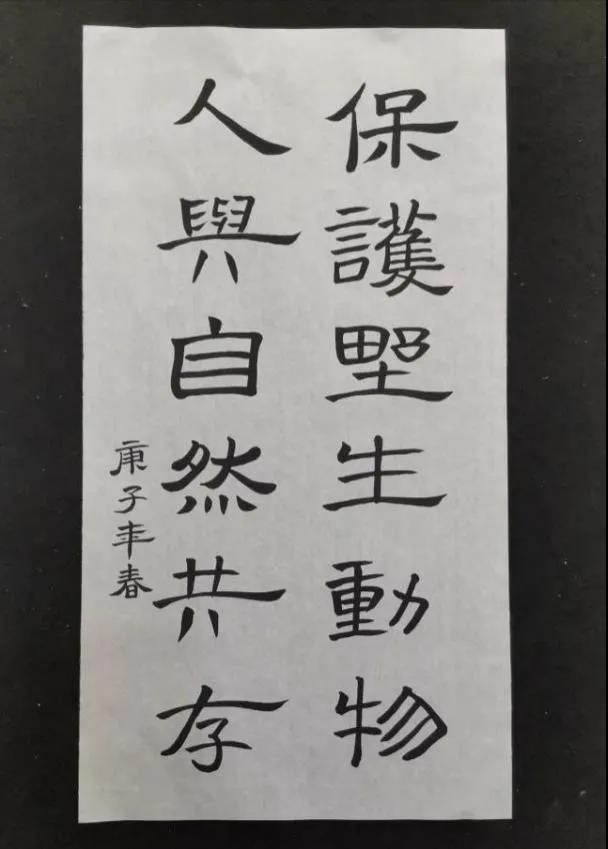 保護野生動物
人與自然共存
庚子年春